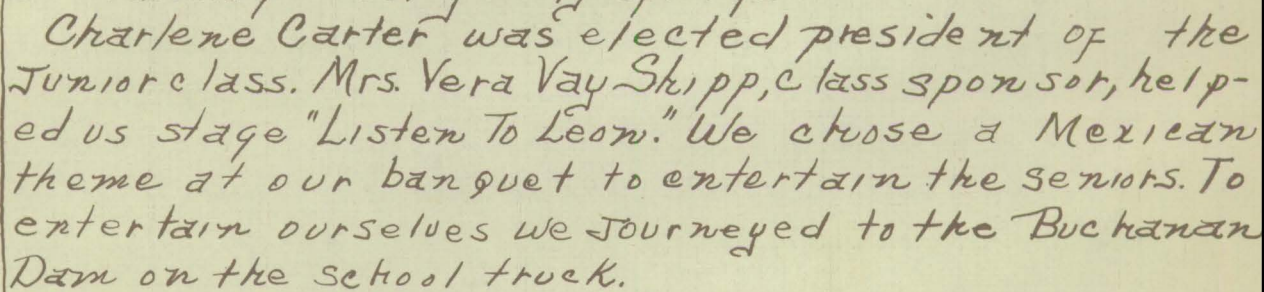 Charlene Carter was elected president of the
Junior class. Mrs. Vera Vay Shipp, class sponsor, help-
ed us stage "Listen To Leon." We chose a Mexican
theme at our banquet to entertain the seniors. To
entertain ourselves we journeyed to the Buchanan
Dam on the school truck.